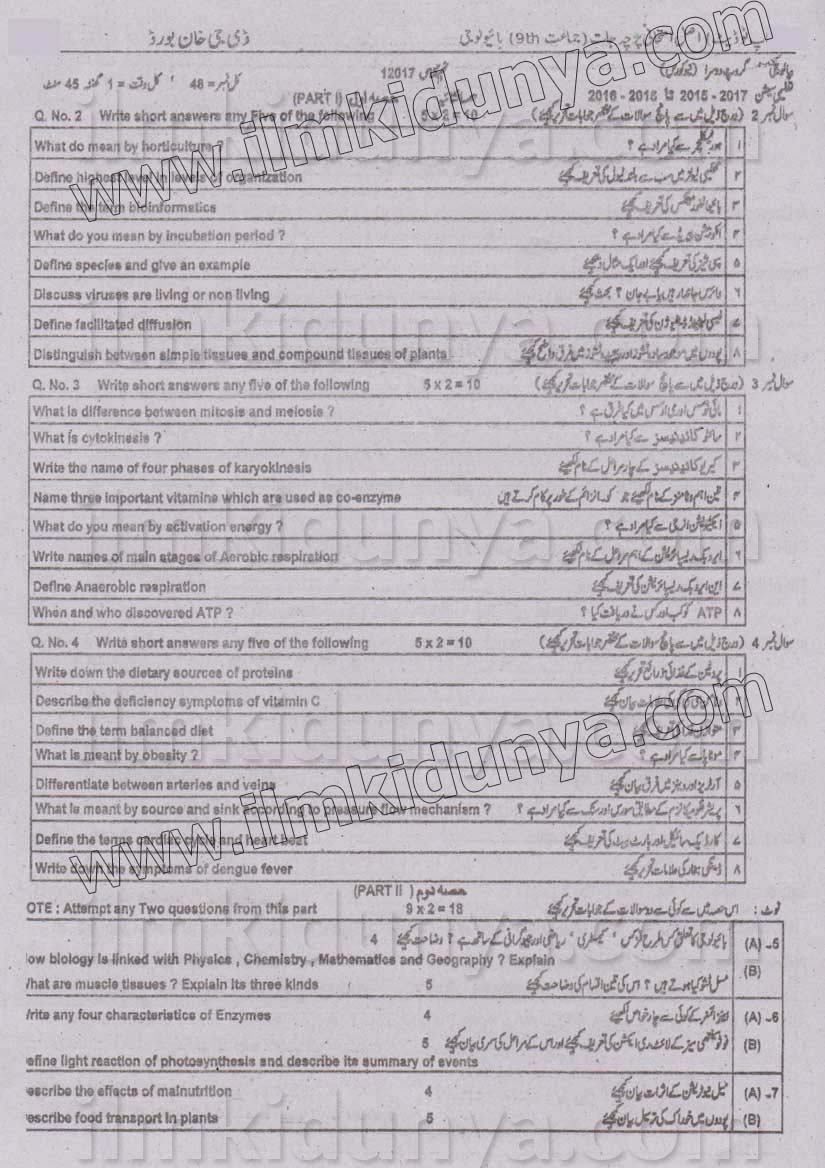 ڈی۔جی خان بورڈ
(جماعت 9th) بائیولوجی
2016 - 2015 تا 2017 - 2015
12017
کل نمبر = 48 کل وقت = 1 گھنٹہ 45 منٹ
(PART I) حصہ اول
Q. No. 2 Write short answers any Five of the following 5 x 2 = 10 (درج ذیل میں سے پانچ سوالات کے مختصر جوابات تحریر کیجئے) سوال نمبر 2
What do mean by horticulture ? ہورٹیکلچر سے کیا مراد ہے ؟ ۱
Define highest level in levels of organization ۲
Define the term bioinformatics بائیو انفورمیٹکس کی تعریف کیجئے ۳
What do you mean by incubation period ? انکوبیشن پیریڈ سے کیا مراد ہے ؟ ۴
Define species and give an example سپی شیز کی تعریف کیجئے اور ایک مثال دیجئے ۵
Discuss viruses are living or non living وائرس جاندار ہیں یا بے جان ؟ بحث کیجئے ۶
Define facilitated diffusion فیسیلیٹیٹڈ ڈفیوژن کی تعریف کیجئے ۷
Distinguish between simple tissues and compound tissues of plants پودوں میں موجود سادہ ٹشوز اور پیچیدہ ٹشوز میں فرق واضح کیجئے ۸
Q. No. 3 Write short answers any five of the following 5 x 2 = 10 (درج ذیل میں سے پانچ سوالات کے مختصر جوابات تحریر کیجئے) سوال نمبر 3
What is difference between mitosis and meiosis ? مائی ٹوسس اور می اوسس میں کیا فرق ہے ؟ ۱
What is cytokinesis ? سائٹوکائنیسز سے کیا مراد ہے ؟ ۲
Write the name of four phases of karyokinesis کیریوکائنیسز کے چار مراحل کے نام لکھیئے ۳
Name three important vitamine which are used as co-enzyme تین اہم وٹامنز کے نام لکھیئے جو کو انزائم کے طور پر کام کرتے ہیں ۴
What do you mean by activation energy ? ایکٹیویشن انرجی سے کیا مراد ہے ؟ ۵
Write names of main stages of Aerobic respiration ایروبک ریسپائریشن کے اہم مراحل کے نام لکھیئے ۶
Define Anaerobic respiration این ایروبک ریسپائریشن کی تعریف کیجئے ۷
When and who discovered ATP ? ATP کو کب اور کس نے دریافت کیا ؟ ۸
Q. No. 4 Write short answers any five of the following 5 x 2 = 10 (درج ذیل میں سے پانچ سوالات کے مختصر جوابات تحریر کیجئے) سوال نمبر 4
Write down the dietary sources of proteins پروٹین کے غذائی ذرائع تحریر کیجئے ۱
Describe the deficiency symptoms of vitamin C بیان کیجئے ۲
Define the term balanced diet کی تعریف کیجئے ۳
What is meant by obesity ? موٹاپا سے کیا مراد ہے ؟ ۴
Differentiate between arteries and veins آرٹریز اور وینز میں فرق بیان کیجئے ۵
What is meant by source and sink according to pressure flow mechanism ? پریشر فلو میکانزم کے مطابق سورس اور سنک سے کیا مراد ہے ؟ ۶
Define the terms cardiac cycle and heart beat کارڈیک سائیکل اور ہارٹ بیٹ کی تعریف کیجئے ۷
Write down the symptoms of dengue fever ڈینگی بخار کی علامات تحریر کیجئے ۸
(PART II) حصہ دوم
OTE : Attempt any Two questions from this part 9 x 2 = 18 نوٹ : اس حصہ میں سے کوئی سے دو سوالات کے جوابات تحریر کیجئے
5۔ (A) بائیولوجی کا تعلق کس طرح فزکس ' کیمسٹری ' ریاضی اور جیوگرافی کے ساتھ ہے ؟ وضاحت کیجئے 4
low biology is linked with Physics , Chemistry , Mathematics and Geography ? Explain
(B) What are muscle tissues ? Explain its three kinds 5 مسل ٹشو کیا ہوتے ہیں ؟ اس کی تین اقسام کی وضاحت کیجئے
Write any four characteristics of Enzymes 4 اینزائمز کے کوئی سے چار خواص لکھیئے 6۔ (A)
(B) فوٹوسنتھی سیز کے لائٹ ری ایکشن کی تعریف کیجئے اور اس کے مراحل کی سمری بیان کیجئے 5
efine light reaction of photosynthesis and describe its summary of events
escribe the effects of malnutrition 4 میل نیوٹریشن کے اثرات بیان کیجئے 7۔ (A)
escribe food transport in plants 5 پودوں میں خوراک کی ترسیل بیان کیجئے (B)
www.ilmkidunya.com
www.ilmkidunya.com
ilmkidunya.com
ilmkidunya.com
ilmkidunya.com
ilmkidunya.com
ilmkidunya.com
ilmkidunya.com